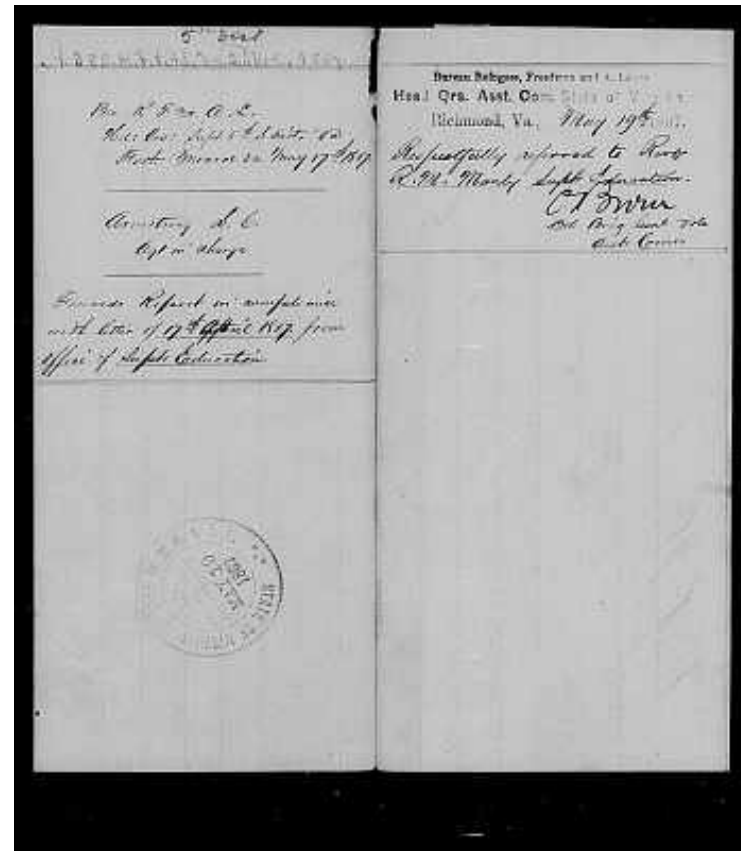 5th Dist
Bu R F and A. L.
Fort Monroe Va May 17th 1867
Armstrong S. C.
Agt in charge
Forwards Report in compliance
with letter of 17th April 1867 from
Office of Supt. Education
Bureau Refugees, Freedmen and A. Lands
Head Qrs. Asst. Com. State of Virginia,
Richmond, Va., May 19th, 1867.
Respectfully referred to Rev
R. M. Manly Supt Education.
MAY 20
1867